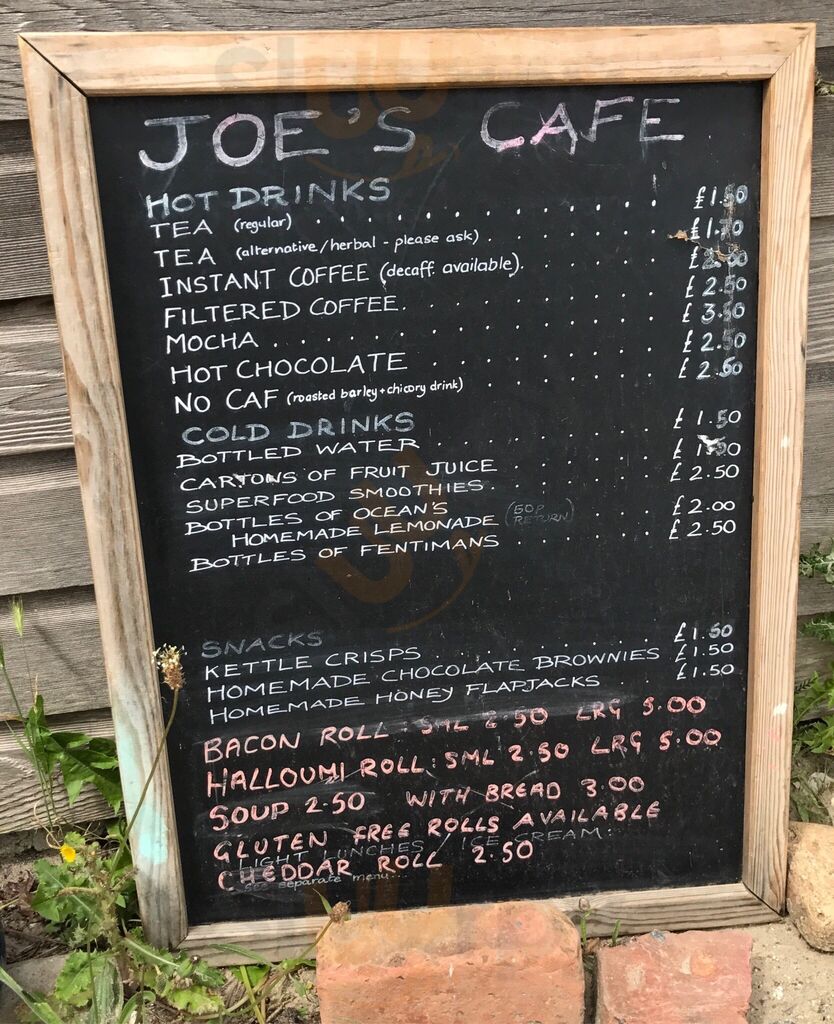 JOE'S CAFE
HOT DRINKS
TEA (regular) . . . . . . . . . . £1.50
TEA (alternative/herbal - please ask) . . . . . £1.70
INSTANT COFFEE (decaff available). . . . . . £2.00
FILTERED COFFEE. . . . . . . . . £2.50
MOCHA . . . . . . . . . . . . £3.50
HOT CHOCOLATE . . . . . . . . . £2.50
NO CAF (roasted barley + chicory drink) . . . . . . £2.60
COLD DRINKS
BOTTLED WATER . . . . . . . . £1.50
CARTONS OF FRUIT JUICE . . . . . . £1.50
SUPERFOOD SMOOTHIES . . . . . . £2.50
BOTTLES OF OCEAN'S
HOMEMADE LEMONADE (50P RETURN) . . . £2.00
BOTTLES OF FENTIMANS . . . . . . £2.50
SNACKS
KETTLE CRISPS . . . . . . . . £1.50
HOMEMADE CHOCOLATE BROWNIES £1.50
HOMEMADE HONEY FLAPJACKS . . £1.50
BACON ROLL : SML 2.50 LRG 5.00
HALLOUMI ROLL : SML 2.50 LRG 5.00
SOUP 2.50 WITH BREAD 3.00
GLUTEN FREE ROLLS AVAILABLE
LIGHT LUNCHES / ICE CREAM:
CHEDDAR ROLL 2.50
see separate menu...